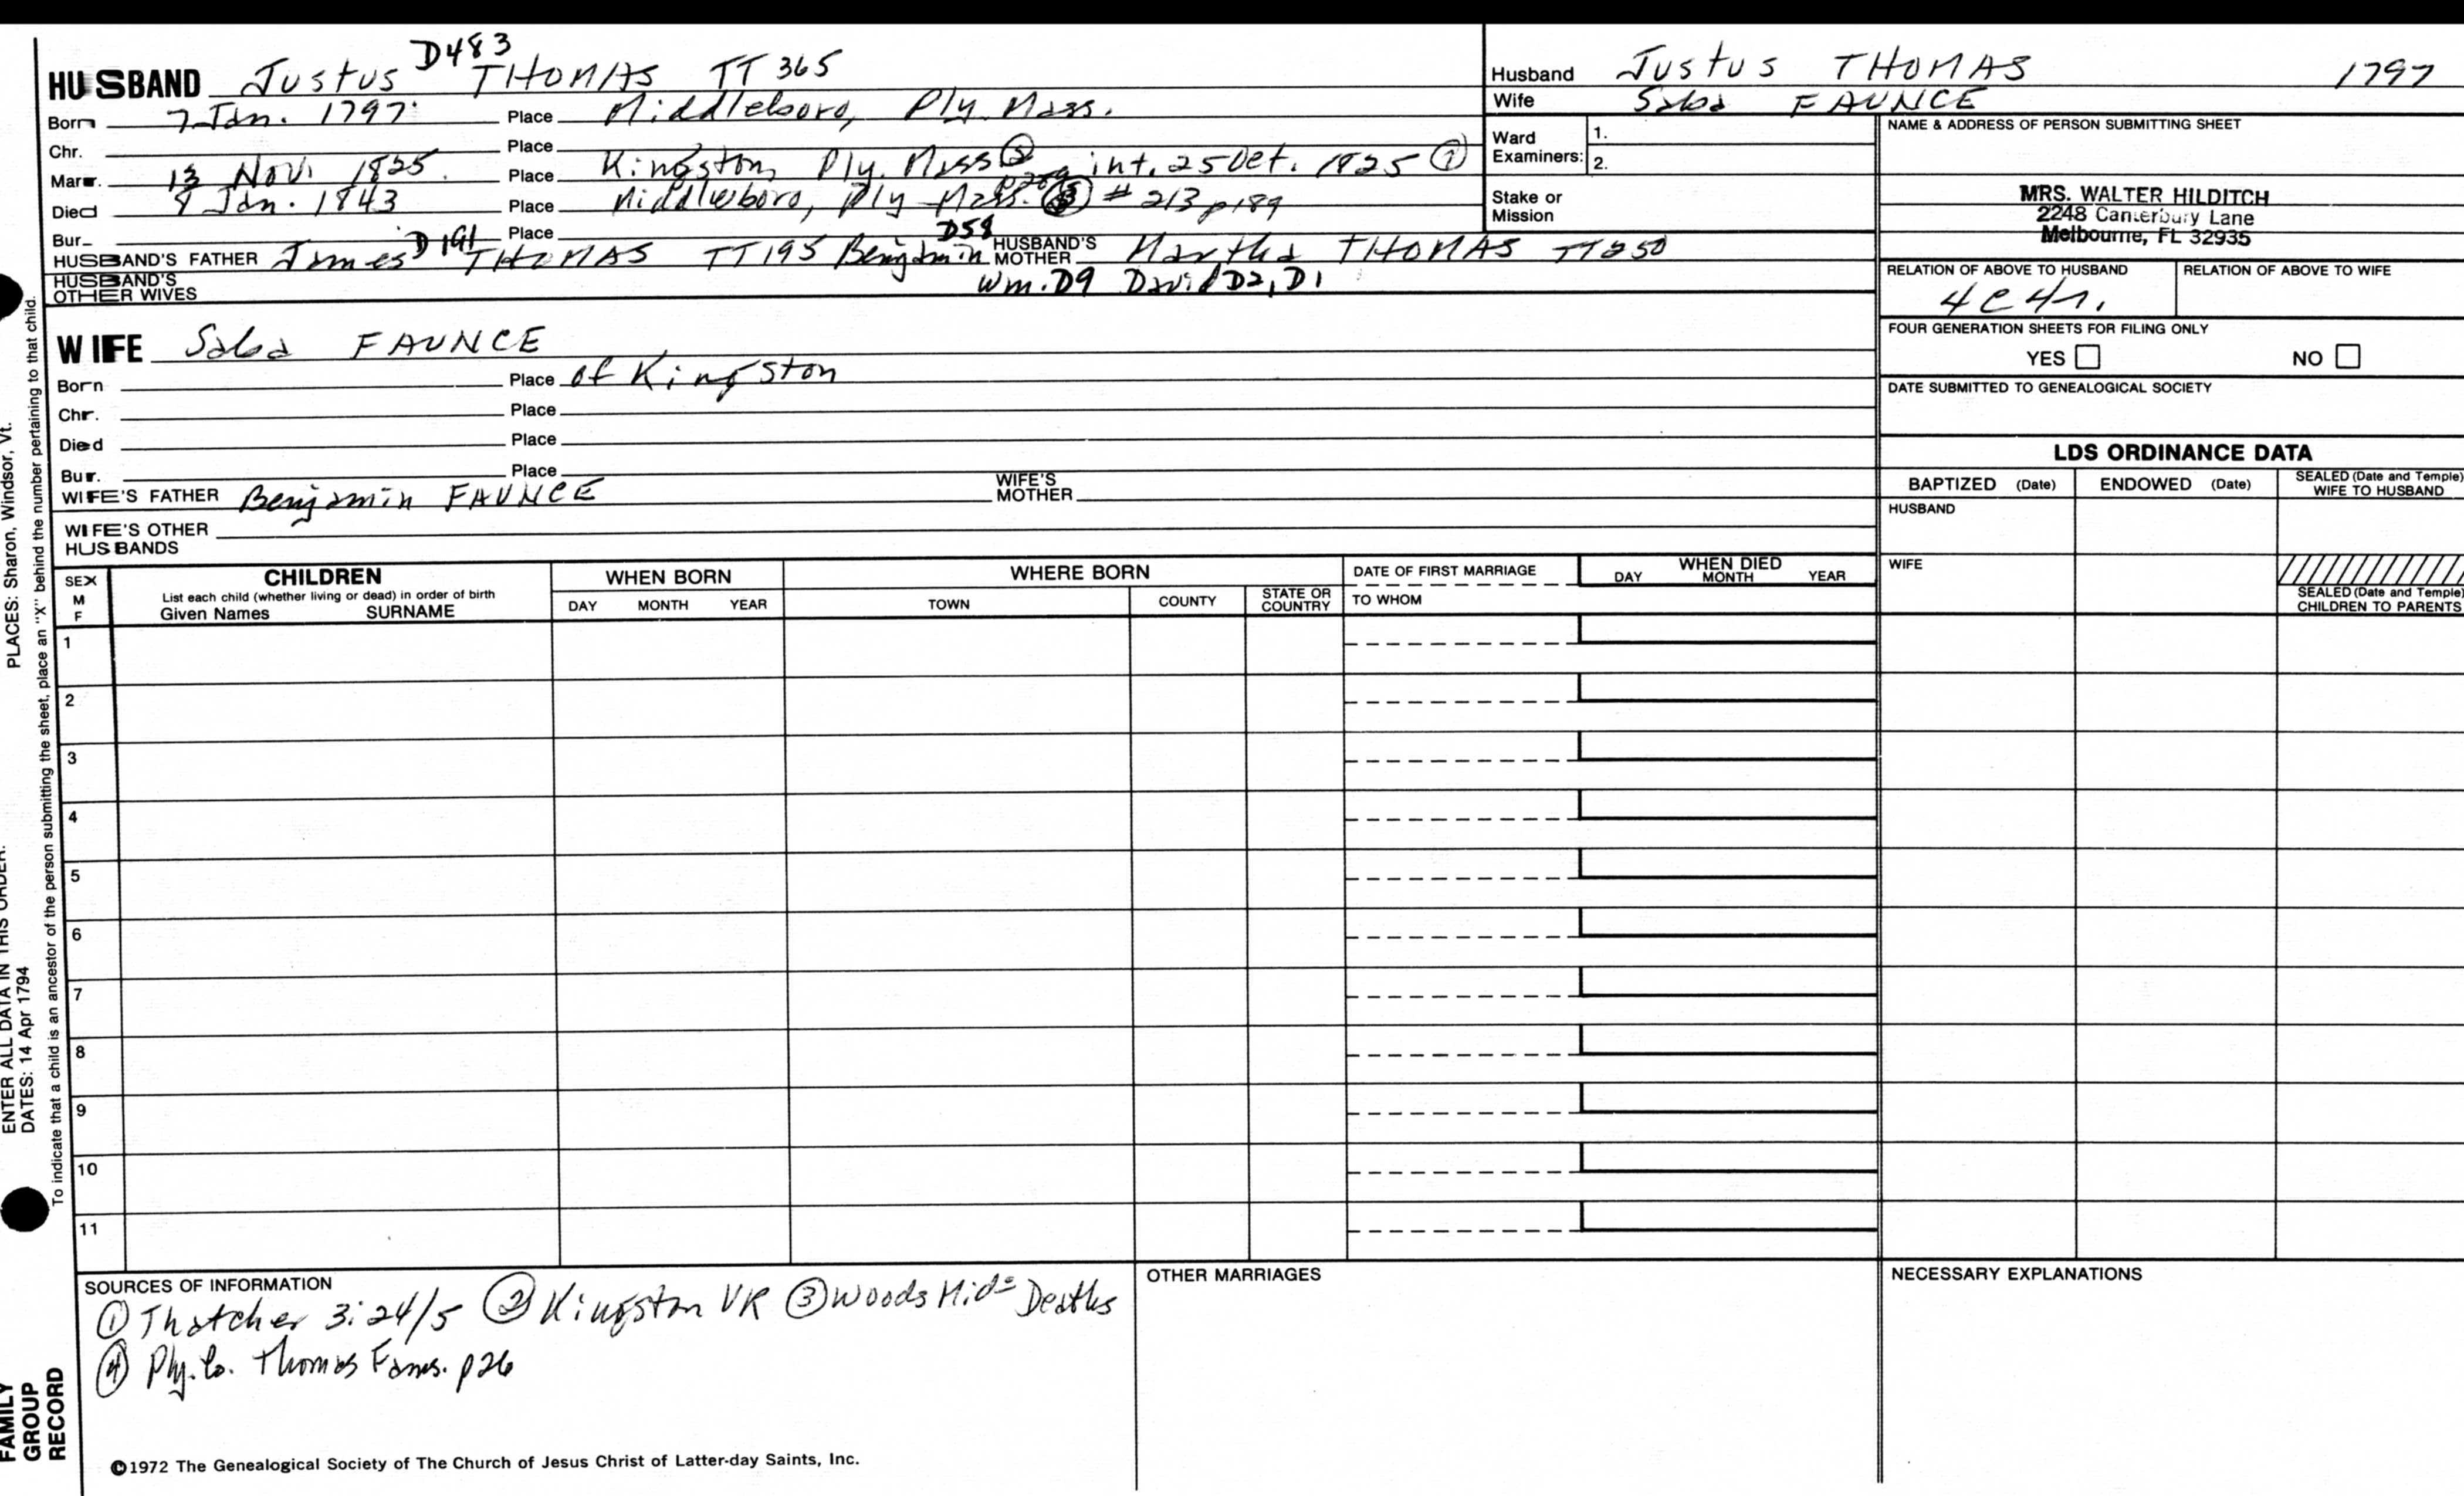 D483
HUSBAND Justus THOMAS TT 365
Born 7 Jan. 1797 Place Middleboro, Ply. Mass.
Chr. Place
Marr. 13 Nov. 1825 Place Kingston, Ply. Mass ② int. 25 Oct. 1825 ①
Died 9 Jan. 1843 Place Middleboro, Ply Mass. ③ # 213 p189
Bur. Place
HUSBAND'S FATHER James D191 THOMAS TT195 Benjamin D58 HUSBAND'S MOTHER Martha THOMAS TT250
HUSBAND'S OTHER WIVES Wm. D9 David D2, D1
WIFE Saba FAUNCE
Born Place of Kingston
Chr. Place
Died Place
Bur. Place
WIFE'S FATHER Benjamin FAUNCE WIFE'S MOTHER
WIFE'S OTHER HUSBANDS
Husband Justus THOMAS 1797
Wife Saba FAUNCE
Ward Examiners: 1.
2.
Stake or Mission
NAME & ADDRESS OF PERSON SUBMITTING SHEET
MRS. WALTER HILDITCH
2248 Canterbury Lane
Melbourne, FL 32935
RELATION OF ABOVE TO HUSBAND RELATION OF ABOVE TO WIFE
4c4r.
FOUR GENERATION SHEETS FOR FILING ONLY
YES NO
DATE SUBMITTED TO GENEALOGICAL SOCIETY
LDS ORDINANCE DATA
BAPTIZED (Date) ENDOWED (Date) SEALED (Date and Temple) WIFE TO HUSBAND
HUSBAND
WIFE
SEALED (Date and Temple) CHILDREN TO PARENTS
SEX M F CHILDREN WHEN BORN WHERE BORN DATE OF FIRST MARRIAGE WHEN DIED
List each child (whether living or dead) in order of birth
Given Names SURNAME DAY MONTH YEAR TOWN COUNTY STATE OR COUNTRY TO WHOM DAY MONTH YEAR
1
2
3
4
5
6
7
8
9
10
11
SOURCES OF INFORMATION
① Thatcher 3:24/5 ② Kingston VR ③ Woods Mid= Deaths
④ Ply. Co. Thomas Fams. p26
OTHER MARRIAGES
NECESSARY EXPLANATIONS
©1972 The Genealogical Society of The Church of Jesus Christ of Latter-day Saints, Inc.
ENTER ALL DATA IN THIS ORDER:
PLACES: Sharon, Windsor, Vt.
DATES: 14 Apr 1794
To indicate that a child is an ancestor of the person submitting the sheet, place an "X" behind the number pertaining to that child.
FAMILY
GROUP
RECORD